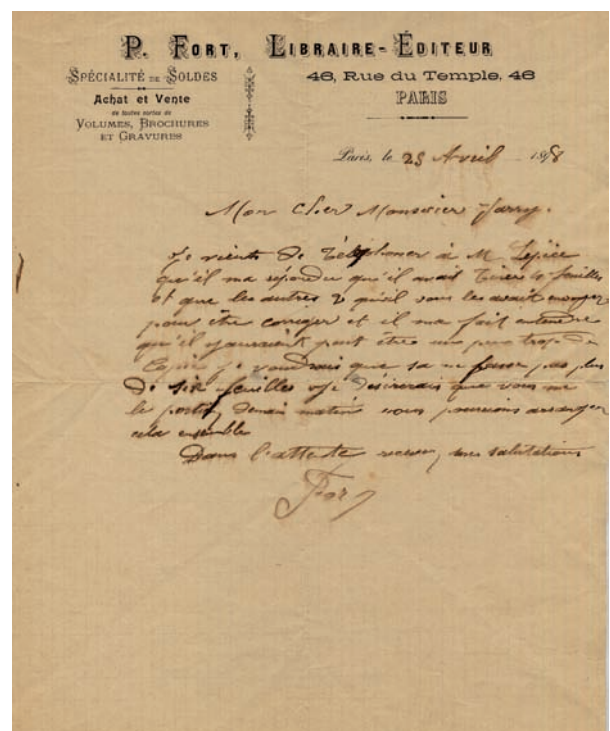 P. FORT, LIBRAIRE-ÉDITEUR
SPÉCIALITÉ DE SOLDES
Achat et Vente
de toutes sortes de
VOLUMES, BROCHURES
ET GRAVURES
46, Rue du Temple, 46
PARIS
Paris, le 25 Avril 1898
Mon Cher Monsieur Jarry.
Je vients de Téléphoner à M.
qu'il ma répondu qu'il avait Tirer 4 feuilles
et que les autres 2 qu'il vous les avait envoyer
pour être corriger et il ma fait entendre
qu'il y aurait peut être un peu trop de
Copie je voudrais que sa ne fasse pas plus
de six feuilles je désirerais que vous me
le portiez demain matin nous pourrions arranger
cela ensemble
Dans l'attente recevez mes salutations
Fort